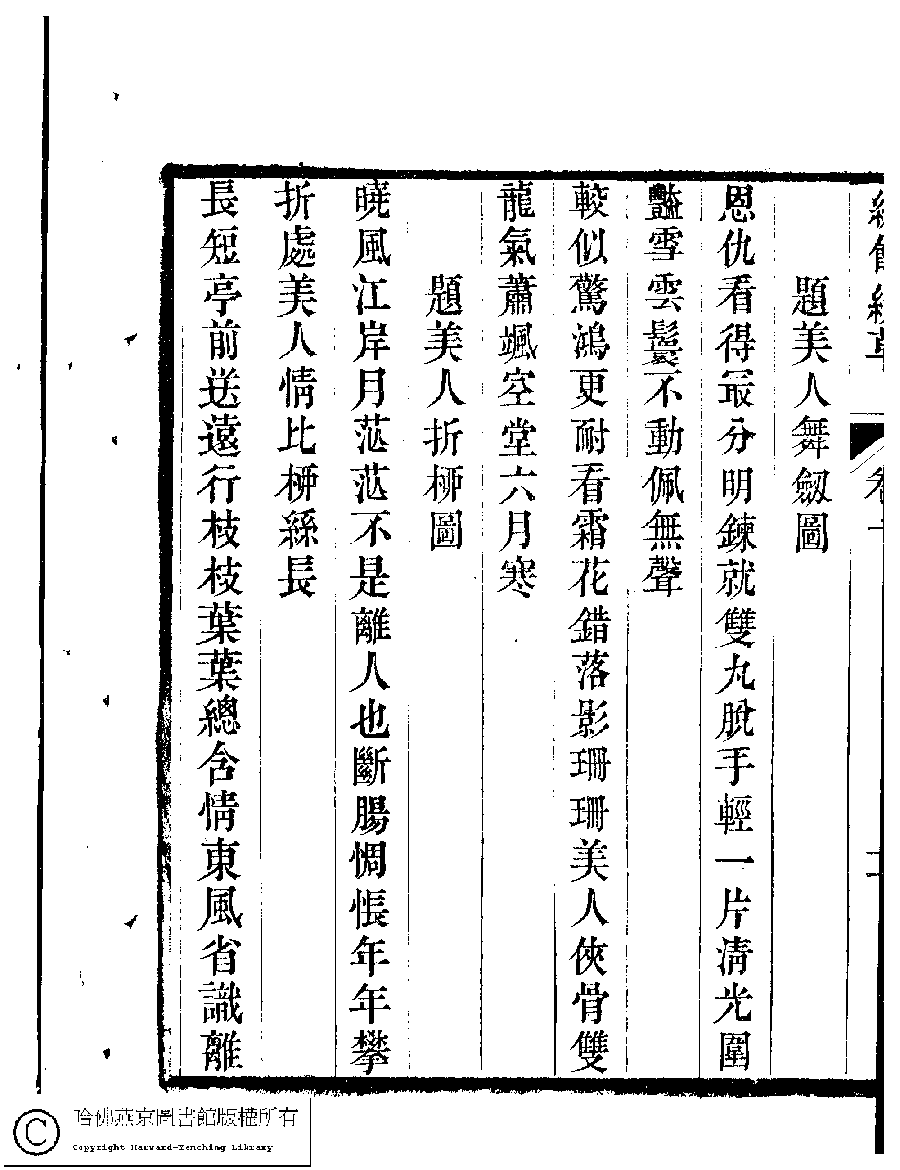 題美人舞劒圖
恩仇看得㝡分明鍊就雙丸脫手輕一片淸光圍
豔雪雲鬟不動佩無聲
較似驚鴻更耐看霜花錯落影珊珊美人俠骨雙
龍氣蕭颯空堂六月寒
題美人折桺圖
曉風江岸月茫茫不是離人也斷腸惆悵年年攀
折處美人情比桺絲長
長短亭前送遠行枝枝葉葉總含情東風省識離
哈佛燕京圖書館版權所有
Copyright Harvard-Yenching Library